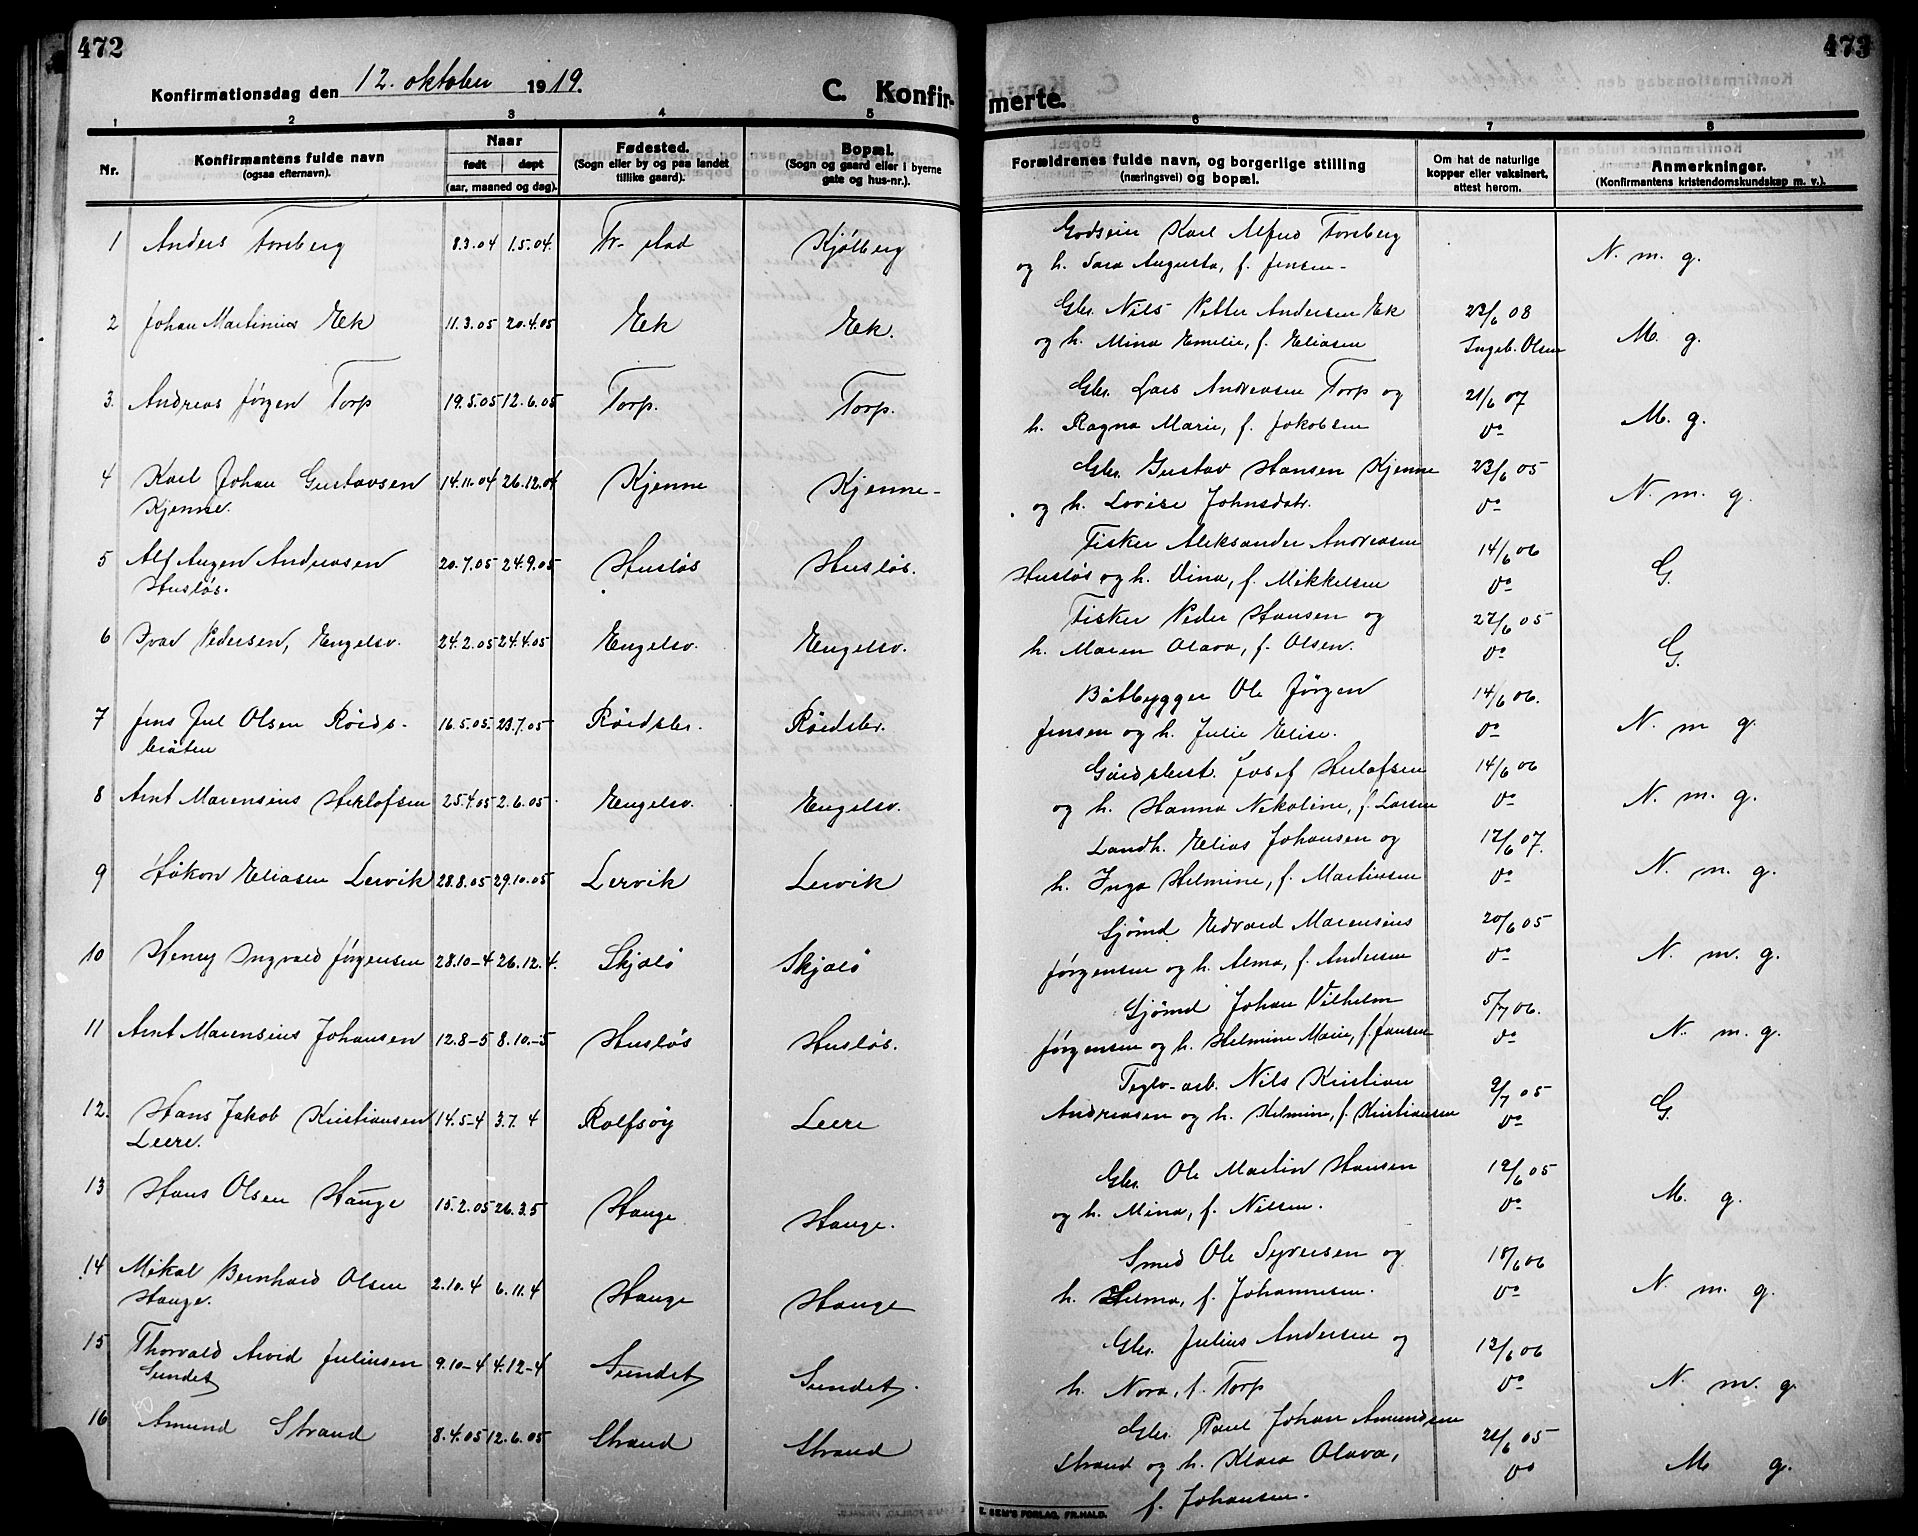 472
473
Konfirmationsdag den 12. oktober 1919.
C. Konfirmerte.
1 2 3 4 5 6 7 8
Nr.
Konfirmantens fulde navn
(ogsaa efternavn).
Naar
født døpt
(aar, maaned og dag).
Fødested.
(Sogn eller by og paa landet
tillike gaard).
Bopæl.
(Sogn og gaard eller i byerne
gate og hus-nr.).
Forældrenes fulde navn, og borgerlige stilling
(næringsvei) og bopæl.
Om hat de naturlige
kopper eller vaksinert,
attest herom.
Anmerkninger.
(Konfirmantens kristendomskundskap m. v.).
1 Anders Forsberg 8.3.04 1.5.04. Fr-stad Kjølberg
Godseier Karl Alfred Forsberg
og h. Sara Augusta, f. Jensen- N. m. g.
2 Johan Martinius Ek 11.3.05 20.4.05 Ek Ek.
Gbr. Nils Petter Andersen Ek 23/6 08
og h. Mina Emelie, f. Eliasen Ingeb. Olsen M. g.
3. Andreas Jørgen Torp 19.5.05 12.6.05 Torp. Torp.
Gbr. Lars Andreasen Torp og 21/6 07
h. Ragna Marie, f. Jakobsen do M. g.
4 Karl Johan Gustavsen 14.11.04 26.12.04 Kjenne Kjenne-
Kjenne.
Gbr. Gustav Hansen Kjenne 23/6 05
og h. Lovise Johnsdatr. do N. m. g.
5 Alf Augen Andreasen 20.7.05 24.9.05 Husløs Husløs.
Husløs.
Fisker Aleksander Andreasen 14/6 06
Husløs og h. Vina, f. Mikkelsen do G.
6 Ivar Pedersen, Engelsv. 24.2.05 24.4.05 Engelsv. Engelsv.
Fisker Peder Hansen og 27/6 05
h. Maren Olava, f. Olsen. do G.
7 Jens Juel Olsen Røids- 16.5.05. 23.7.05 Røidsbr. Røidsbr.
bråten
Båtbygger Ole Jørgen 14/6 06.
Jensen og h. Julie Elise. do N. m g.
8 Arnt Marensius Herlofsen 25.4.05 2.6.05 Engelsv. Engelsv.
Gårdsbest. Josef Herlofsen 14/6 06
og h. Hanna Nikoline, f. Larsen do N. m. g.
9 Håkon Eliasen Lervik 28.8.05 29.10.05 Lervik Lervik
Landh. Elias Johansen og 12/6 07.
h. Inga Helmine, f. Martinsen do N. m. g.
10 Henry Ingvald Jørgensen 28.10-4 26.12.4. Skjælø Skjælø
Sjømd Edvard Marensius 20/6 05
Jørgensen og h. Alma, f. Andersen do N. m. g.
11 Arnt Marensius Johansen 12.8-5 8.10.-5 Husløs Husløs.
Sjømd Johan Vilhelm 5/7 06.
Jørgensen og h. Helmine Marie, f. Jansen do N. m. g.
12. Hans Jakob Kristiansen 14.5-4 3.7. 4 Rolfsøy Leere
Leere.
Teglv-arb. Nils Kristian 9/7 05
Andreasen og h. Helmine, f. Kristiansen do G.
13 Hans Olsen Hauge 15.2.05 26.3.5 Hauge Hauge.
Gbr. Ole Martin Hansen 19/6 05
og h. Mina, f. Nilsen. do M. g.
14 Mikal Bernhard Olsen 2.10.4 6.11.4 Hauge Hauge
Hauge.
Smed Ole Syversen og 18/6 06
h. Helma, f. Johannesen. do N. m. g.
15 Thorvald Arvid Juliusen 9.10-4 4.12-4 Sundet Sundet.
Sundet
Gbr. Julius Andersen og 13/6 06
h. Nora, f. Torp do N. m. g.
16 Amund Strand 8.4.05 12.6.05 Strand Strand
Gbr. Paul Johan Amundsen
Strand og h. Klara Olava, 21/6 05
f. Johansen. do M g.
E. SEM'S FORLAG, FR.HALD.